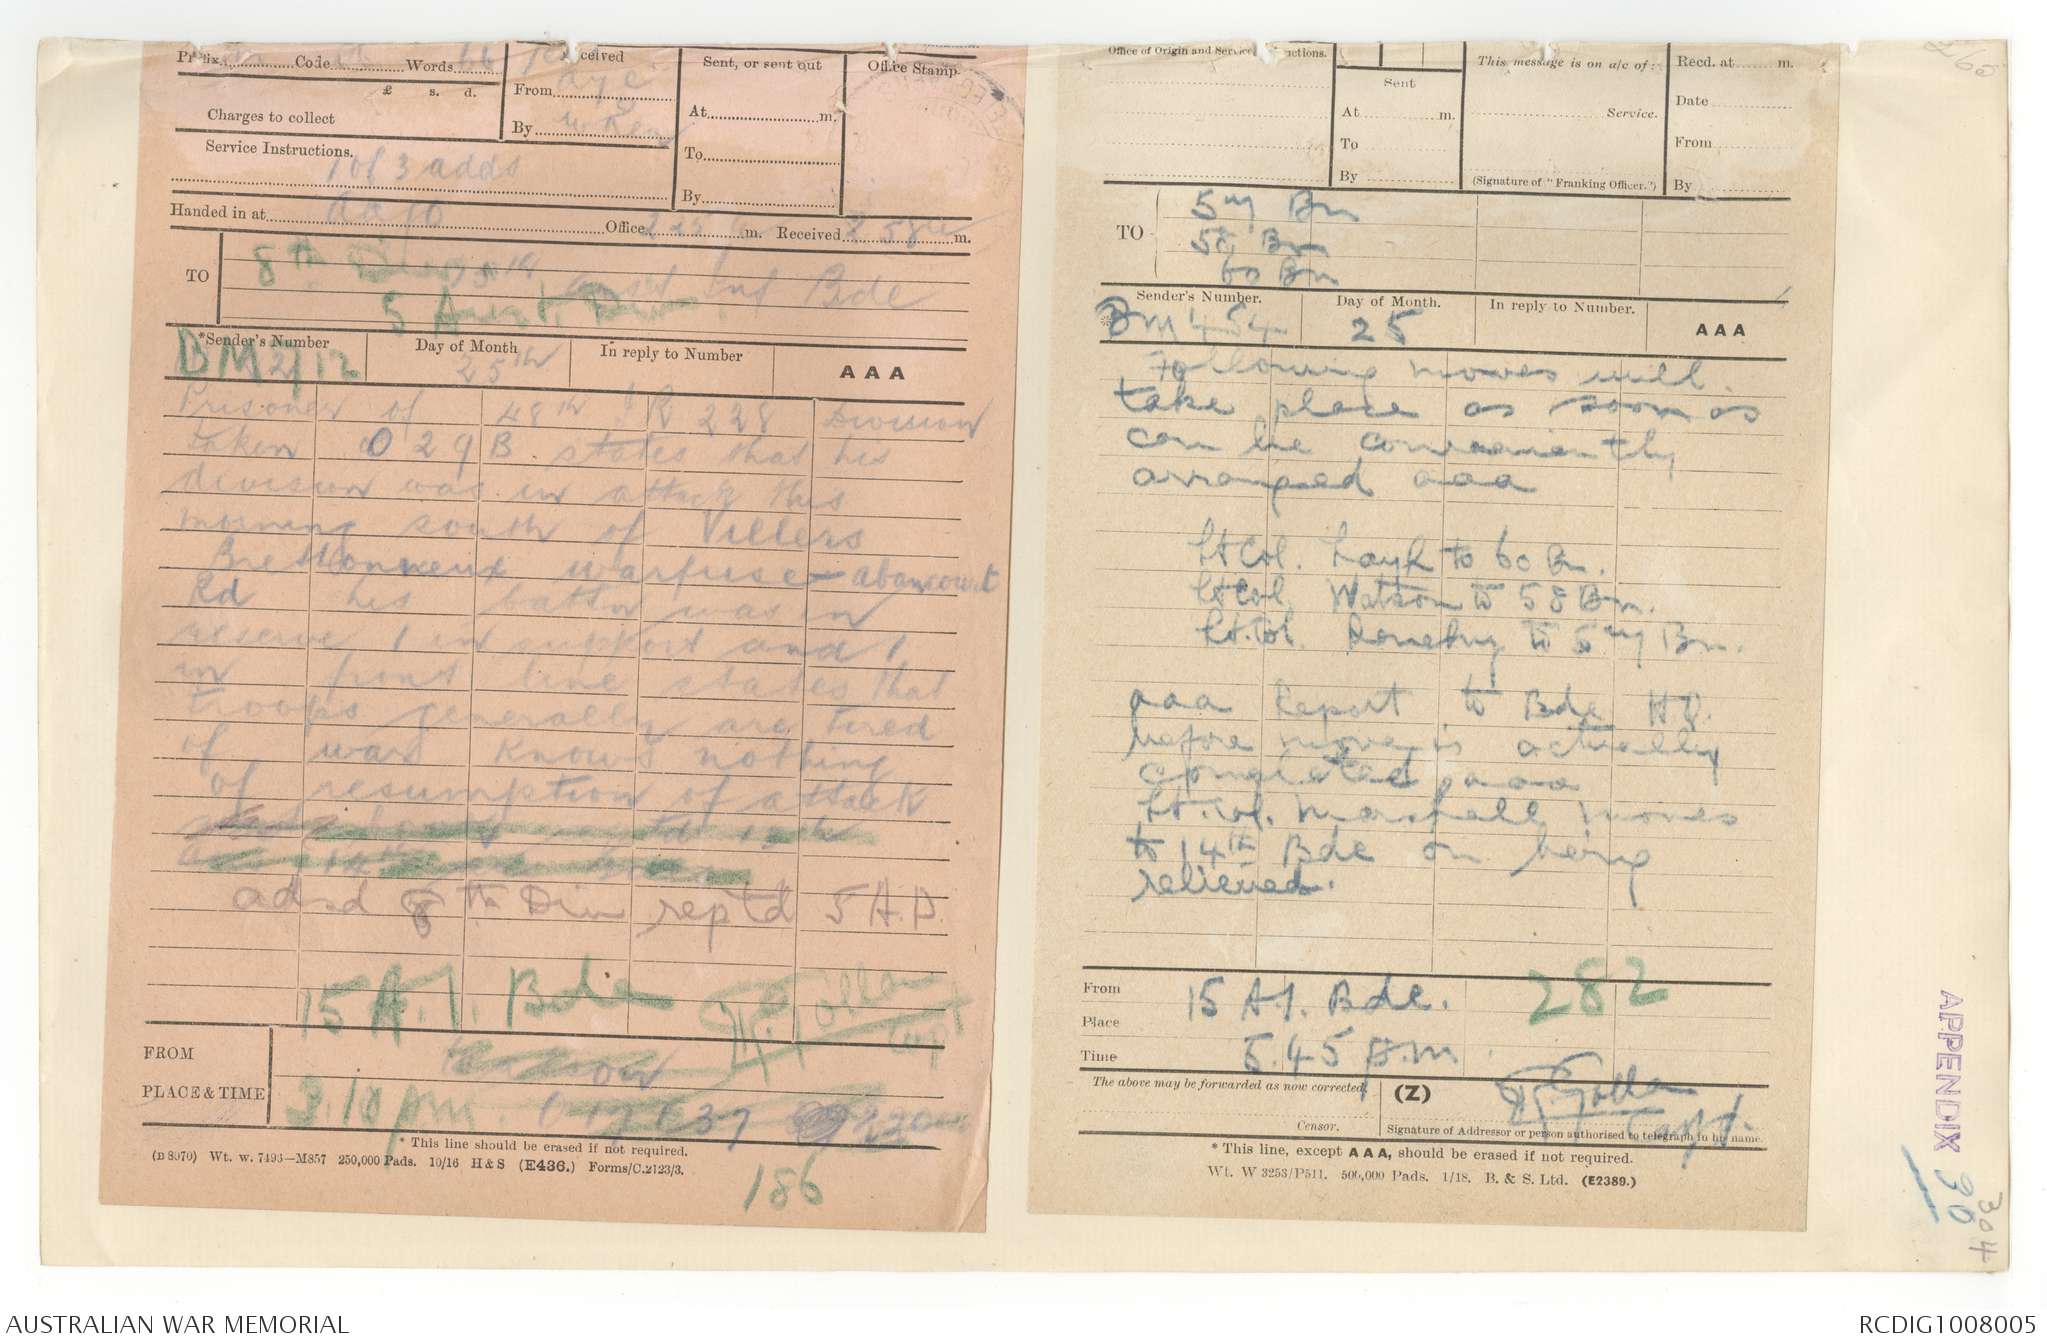 Prefix Code Words 66
£ s. d.
Charges to collect
Received
From
By
Sent, or sent out
At m.
To
By
Office Stamp.
Service Instructions.
1 of 3 adds
Handed in at Office 225 m. Received 258 m.
TO
8th Div 15th Aust Inf Bde
5 Aust. Div.
*Sender's Number
BM 2/12
Day of Month
25th
In reply to Number
AAA
Prisoner of 48th I R 228 Division
taken O 29 B states that his
division was in attack this
morning south of Villers
Bretonneux warfusee-abancourt
Rd his battn was in
reserve 1 in support and 1
in front line states that
troops generally are tired
of war knows nothing
of resumption of attack
adsd 8th Div reptd 5 A.D.
15 A.I. Bde
Capt
FROM
PLACE & TIME
3.10 pm.
* This line should be erased if not required.
(B 8970) Wt. w. 7493—M857 250,000 Pads. 10/16 H & S (E436.) Forms/C.2123/3.
186
Office of Origin and Service Instructions.
Sent
At m.
To
By
This message is on a/c of:
Service.
(Signature of "Franking Officer.")
Recd. at m.
Date
From
By
TO
57 Bn
58 Bn
60 Bn
Sender's Number.
BM 454
Day of Month.
25
In reply to Number.
AAA
Following moves will
take place as soon as
can be conveniently
arranged aaa
Lt Col. Layh to 60 Bn.
Lt Col. Watson to 58 Bn.
Lt. Col. Denehy to 57 Bn.
aaa Report to Bde HQ.
before move is actually
completed aaa
Lt. Col. Marshall moves
to 14th Bde on being
relieved.
From 15 A.I. Bde.
282
Place
Time 5.45 p.m.
The above may be forwarded as now corrected.
(Z)
Capt.
Censor.
Signature of Addressor or person authorised to telegraph in his name.
* This line, except AAA, should be erased if not required.
Wt. W 3253/P511. 500,000 Pads. 1/18. B. & S. Ltd. (E2389.)
APPENDIX 30
304
AUSTRALIAN WAR MEMORIAL
RCDIG1008005